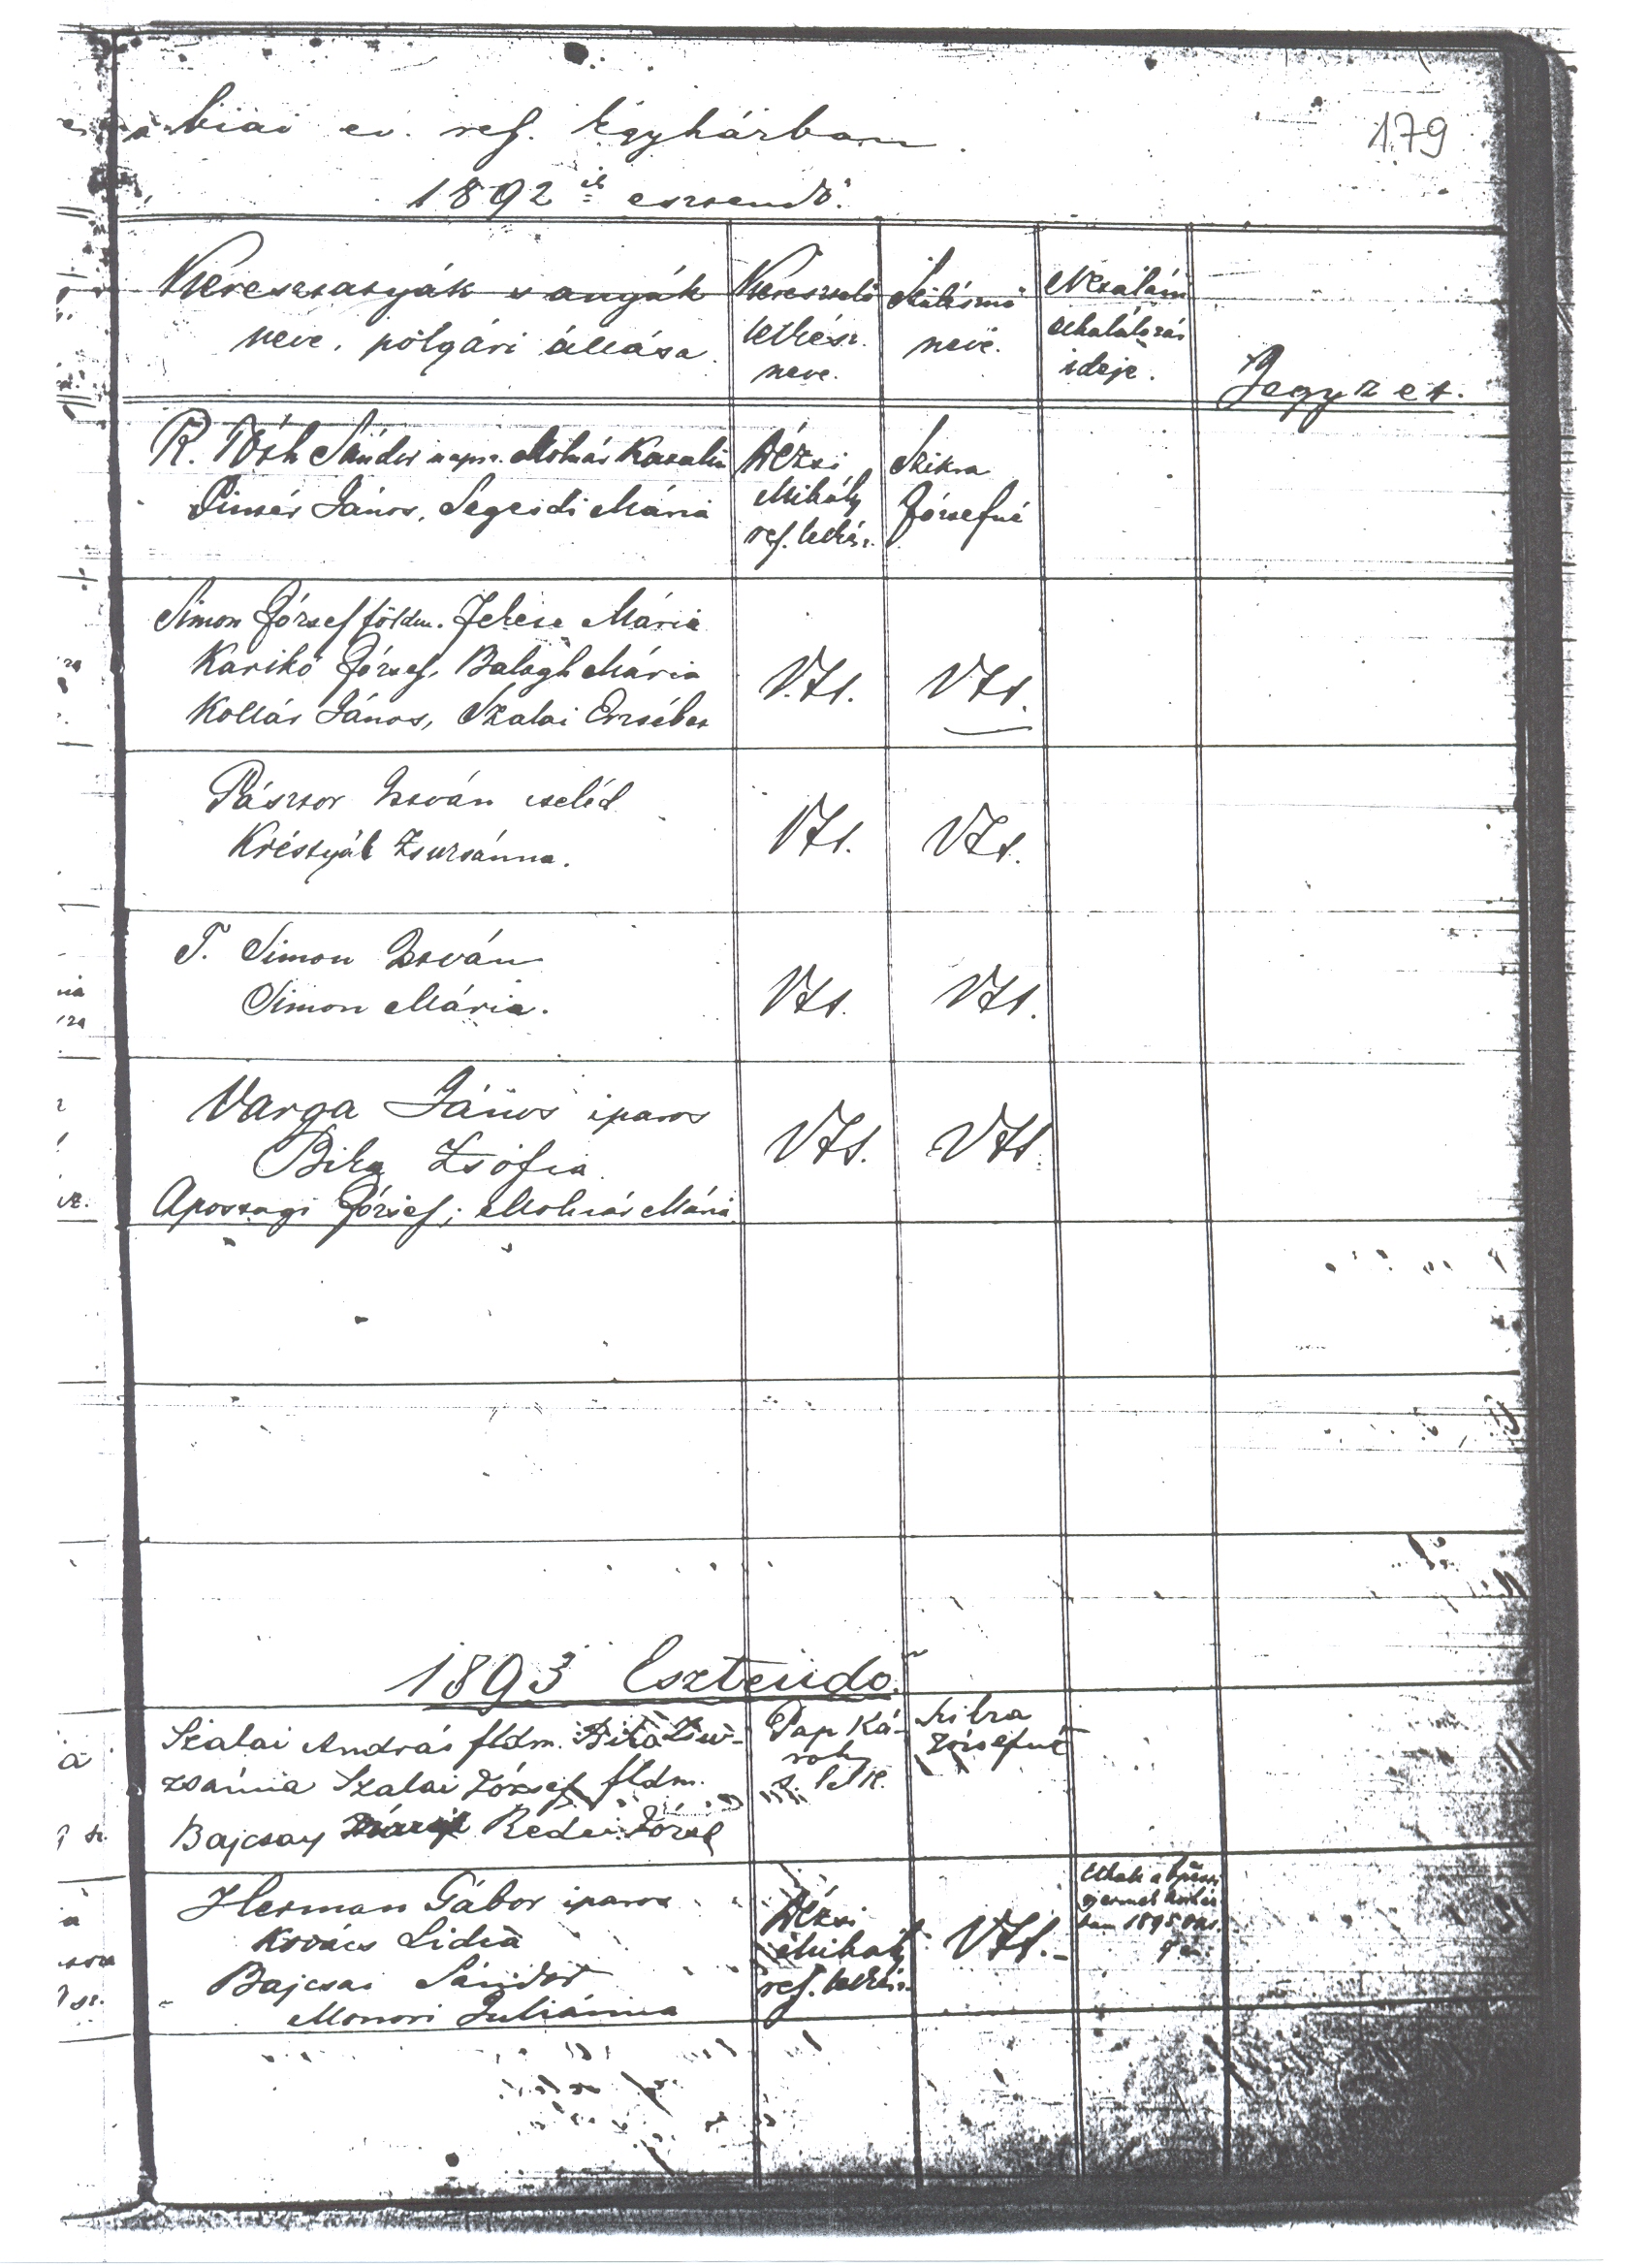 a biai ev. ref. Egyházban.
179
1892 ik esztendő.
Keresztatyák s anyák
neve, polgári állása.
Keresztelő
lelkész
neve.
Szülésznő
neve.
Netalani
elhalálozás
ideje.
Jegyzet.
R. Tóth Sándor naps. Molnár Katalin
Pintér János, Segesdi Mária
Dézsi
Mihály
ref. lelkész.
Szikra
Józsefné
Simon József földm. Fekete Mária
Karikó József, Balogh Mária
Kollár János, Szalai Erzsébet
V.Zs.
VZs.
Pásztor István cseléd
Zsuzsánna.
VZs.
VZs.
T. Simon István
Simon Mária.
VZs.
VZs.
Varga János iparos
Bita Zsófia
József; Molnár Mária
VZs.
VZs.
1893 Esztendő.
Szalai András fldm. Bita Zsu-
zsánna Szalai József fldm.
Bajcsay Rédei József
Pap Ká-
roly
s. lelk.
Szikra
Józsefné
Herman Gábor iparos
Kovács Lidia
Bajcsai Sándor
Monori Juliánna
Dézsi
Mihály
ref. lelkész.
VZs.
gyermek
ban 1895 okt.
9 én.